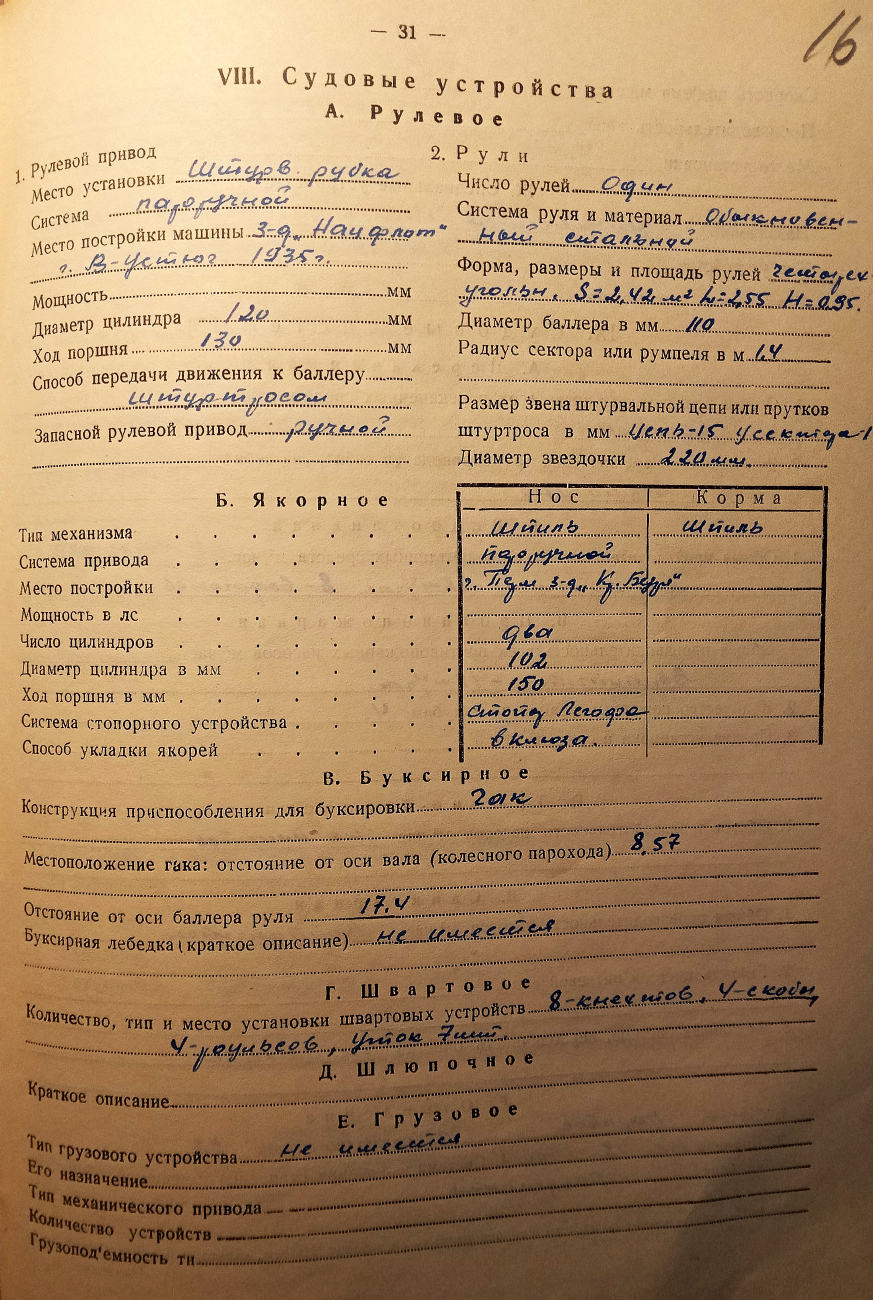 — 31 —
16
VIII. Судовые устройства
А. Рулевое
1. Рулевой привод
Место установки Штурв. рубка
Система пароручной
Место постройки машины З-д „Нацфлот“
г. В-Устюг 1935г.
Мощность мм
Диаметр цилиндра 120 мм
Ход поршня 130 мм
Способ передачи движения к баллеру
штуртросом
Запасной рулевой привод ручной
2. Рули
Число рулей Один
Система руля и материал Обыкновен-
ный стальной
Форма, размеры и площадь рулей четырех
угольн. S=2,42 м² L=2,55 H=0,95.
Диаметр баллера в мм 110
Радиус сектора или румпеля в м 1,4
Размер звена штурвальной цепи или прутков
штуртроса в мм Цепь-15 у сектора-1
Диаметр звездочки 220 мм.
Б. Якорное
Нос Корма
Тип механизма Шпиль Шпиль
Система привода Пароручной
Место постройки г. Пдм з-д „Кр. Бурл“
Мощность в лс
Число цилиндров два
Диаметр цилиндра в мм 102
Ход поршня в мм 150
Система стопорного устройства Стопор Легофа
Способ укладки якорей в клюза.
В. Буксирное
Конструкция приспособления для буксировки Гак
Местоположение гака: отстояние от оси вала (колесного парохода) 8,57
Отстояние от оси баллера руля 17,4
Буксирная лебедка (краткое описание) не имеется
Г. Швартовое
Количество, тип и место установки швартовых устройств 8-кнехтов, 4-скобы,
4-роульсов, Уток 7шт.
Д. Шлюпочное
Краткое описание
Е. Грузовое
Тип грузового устройства не имеется
Его назначение
Тип механического привода
Количество устройств
Грузопод'емность тн